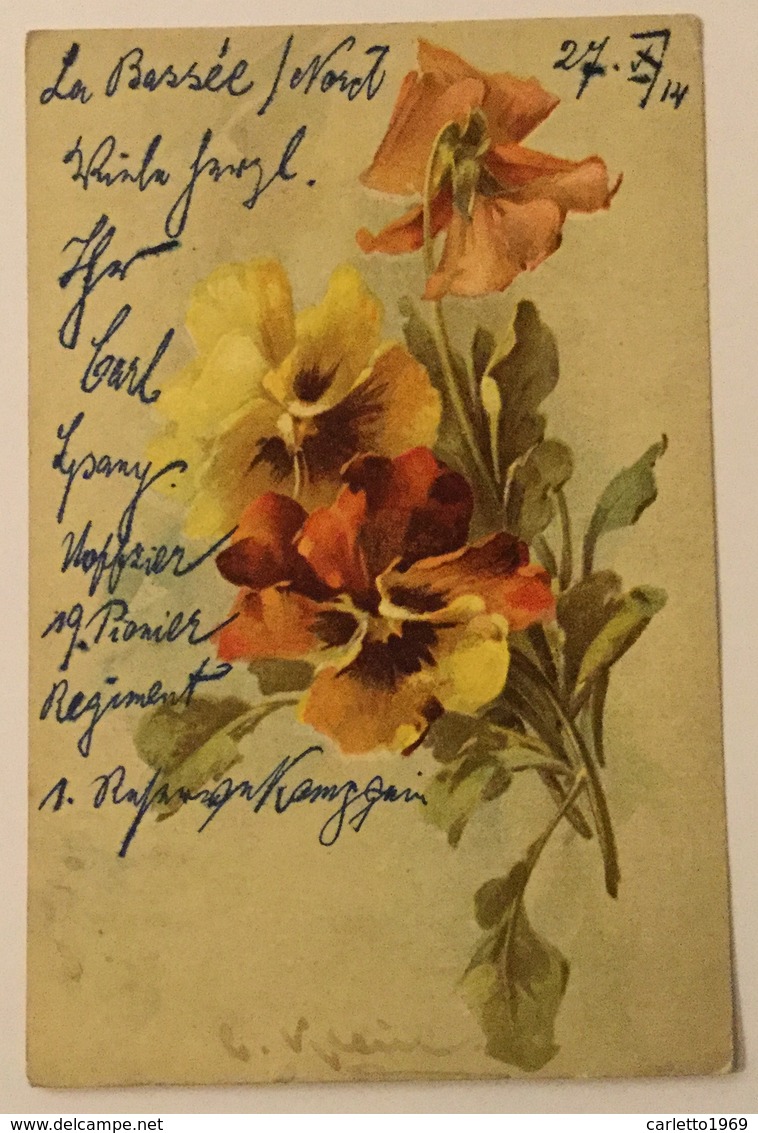 La Bassée / Nord
27. X/14
Viele herzl.
Ihr
Carl
Uoffzier
19. Pionier
Regiment
1. Reserve Kompagnie
C. Klein
www.delcampe.net
carletto1969